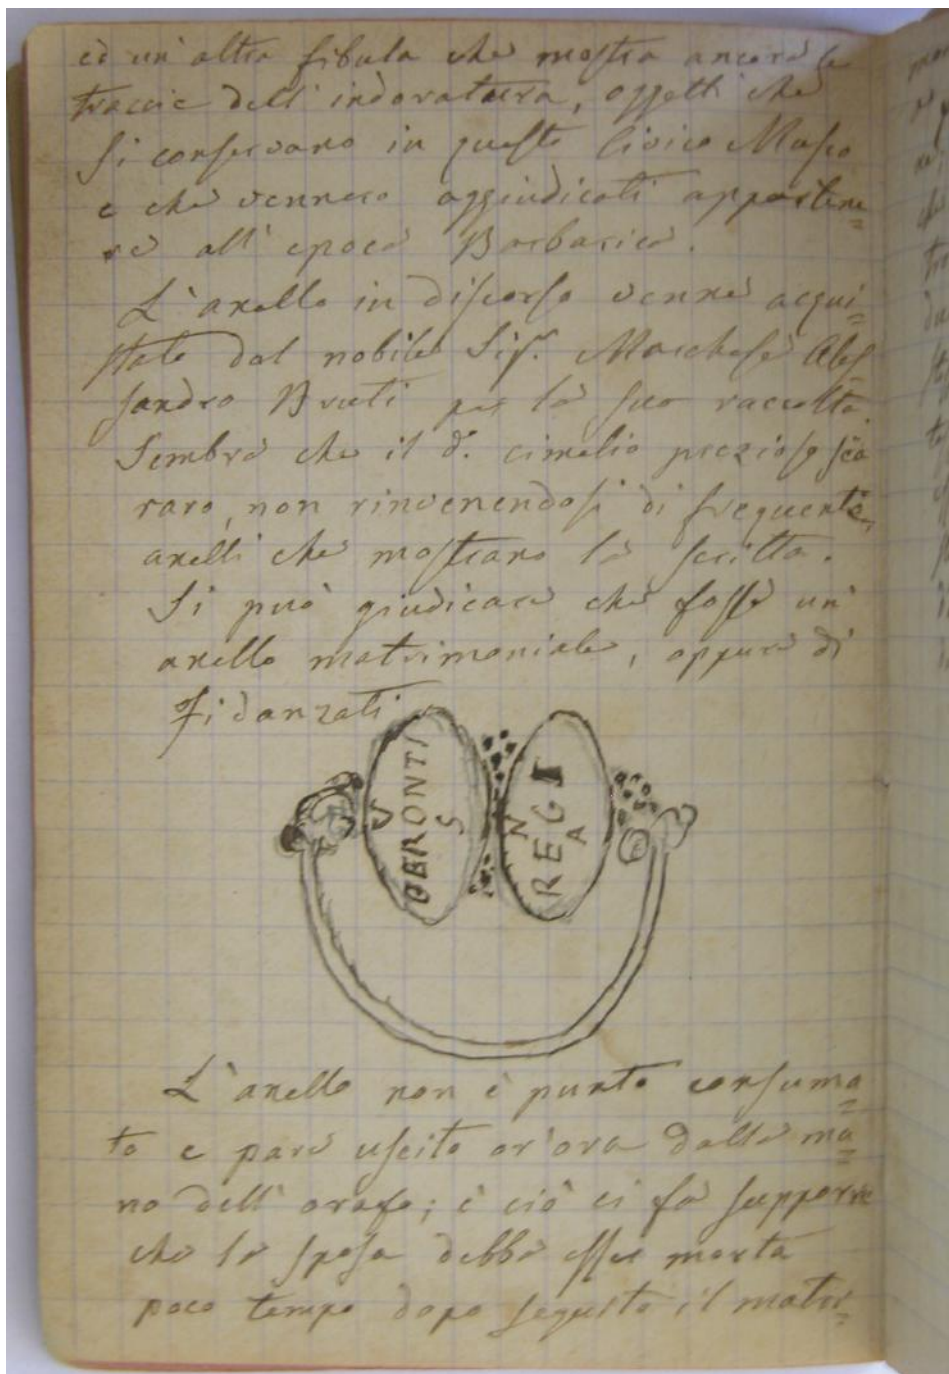 ed un'altra fibula che mostra ancora le
traccie dell'indoratura, oggetti che
si conservano in questo Civico Museo
e che vennero aggiudicati apparten=
re all'epoca Barbarica.
L'anello in discorso venne acqui=
stato dal nobile Sigr. Marchese Ales=
sandro Bruti per la sua raccolta.
Sembra che il d.o cimelio prezioso sia
raro, non rinvenendosi di frequente
anelli che mostrano la scritta.
Si può giudicare che fosse un'
anello matrimoniale, oppure di
Fidanzati
GERONTI
V S
REGI
N A
L'anello non è punto consuma=
to e pare uscito or'ora dalla ma=
no dell'orafo; e ciò ci fa supporre
che la sposa debba esser morta
poco tempo dopo seguito il matri=